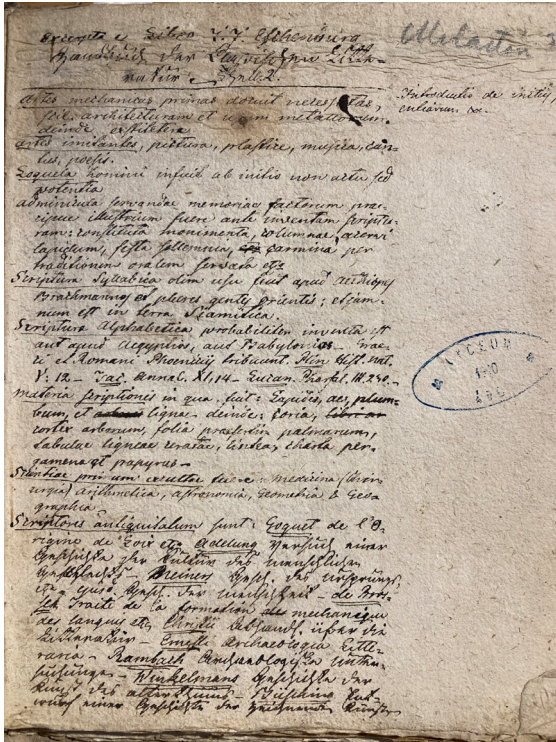 Excerpta e Libro J. J. Eschenburg
Handbuch der Classischen Litte-
ratur
Melaiten
Introductio de initiis
Artes mechanicas primas docuit necessitas,
scil. architecturam et usum metallorum.
deinde
artes imitantes, pictura, plastice, musica, can-
tus, poesis.
Loquela homini infuit ab initio non actu sed
potentia
adminicula servandae memoriae factorum prae-
cipue illustrium fuere ante inventam scriptu-
ram: constituta monimenta, columnae, acervi
lapidum, festa sollennia, carmina per
traditionem oralem servata etc
Scriptura Syllabica olim usu fuit apud Aethiopes
Brachmannos et plures gentes orientis; etiam-
num est in terra Siamitica.
Scriptura Alphabetica probabiliter inventa est
aut apud Aegyptios, aut Babylonios - Grae-
ci et Romani Phoenicis tribuunt. Plin Hist. nat.
V. 12 - Tac. Annal. XI, 14 - Lucan. Pharsal. III. 220 -
materia scriptionis in qua, fuit: Lapides, aes, plum-
bum, et ligna - deinde: coria,
cortex arborum, folia praesertim palmarum,
tabulae ligneae ceratae, lintea, charta per-
gamena et papyrus -
Scientiae primum excultae fuere - medicina (Chir-
urgia) arithmetica, astronomia, Geometria & Geo-
graphia.
Scriptores antiquitatum sunt: Goguet de l'O-
rigine de Loix etc Adelung Versuch einer
Geschichte der Kultur des menschlichen
Geschlechts - Meiners Gesch. des Ursprungs
etc - ejusd. Gesch. der Menschheit - de Bros-
ses Traité de la formation mechanique
des langues etc Christ Abhandl. über die
Litteratur - Ernesti Archaeologia Litte-
raria - Rambach Archaeologische Unter-
suchungen - Winkelmans Geschichte der
Kunst des Alterthums - Büsching Ent-
wurf einer Geschichte der zeichnenden Künste
LYCEUM